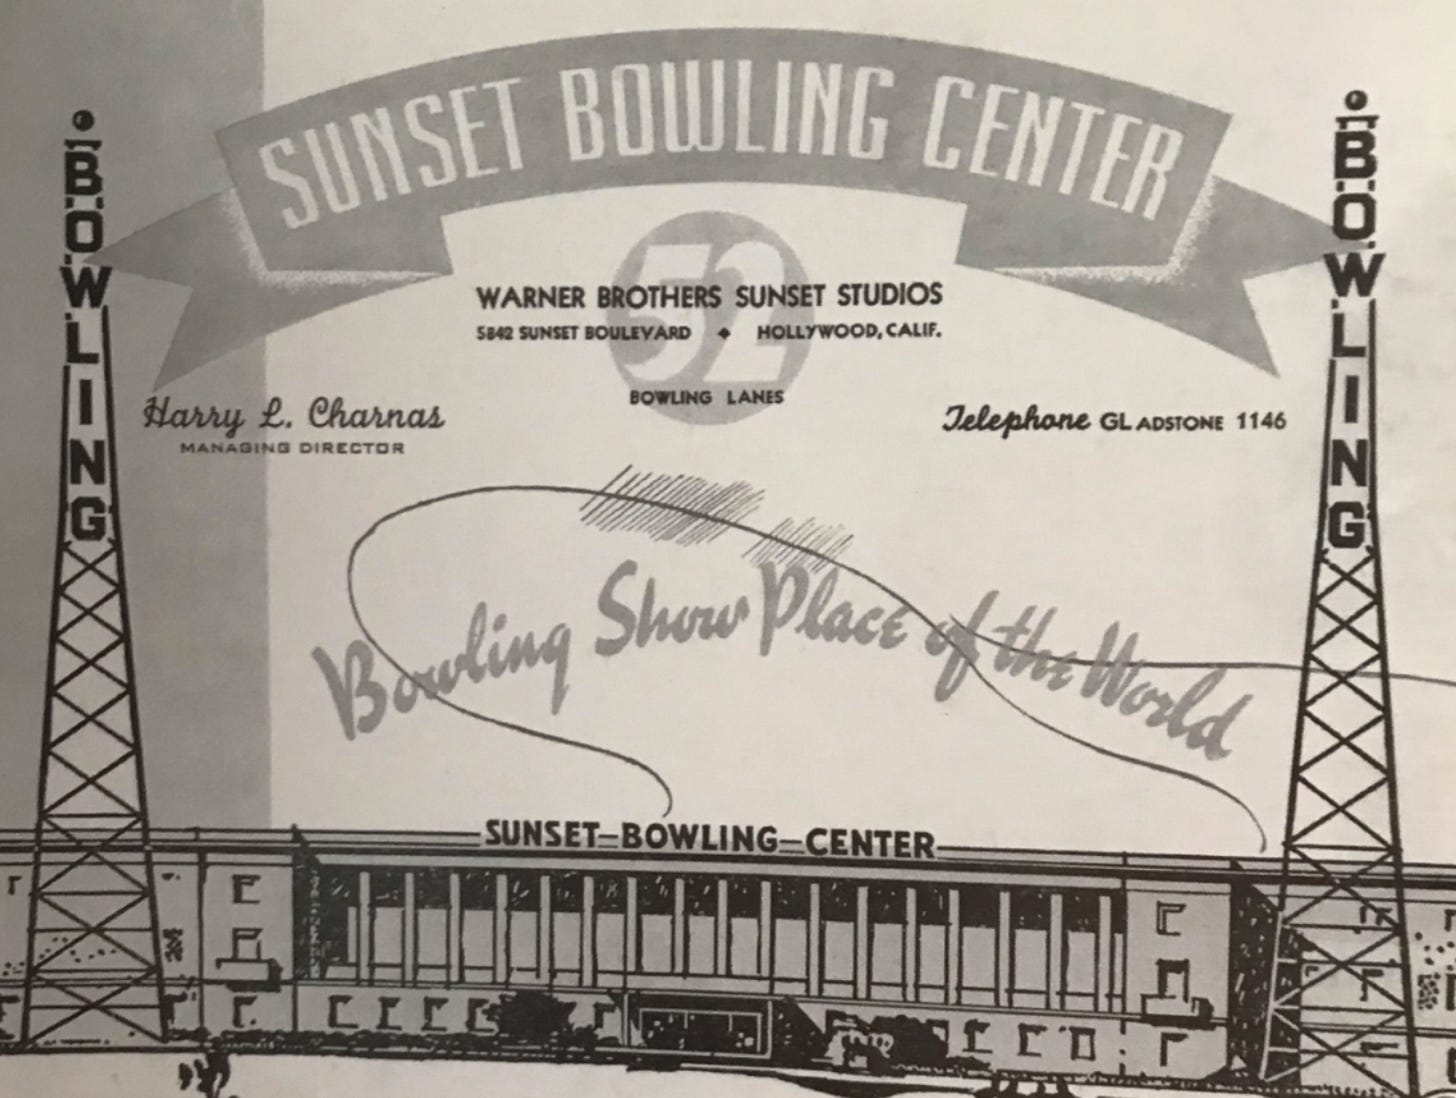 SUNSET BOWLING CENTER
52
WARNER BROTHERS SUNSET STUDIOS
5842 SUNSET BOULEVARD ◆ HOLLYWOOD, CALIF.
BOWLING LANES
Harry L. Charnas
MANAGING DIRECTOR
Telephone GLADSTONE 1146
BOWLING
BOWLING
Bowling Show Place of the World
SUNSET-BOWLING-CENTER